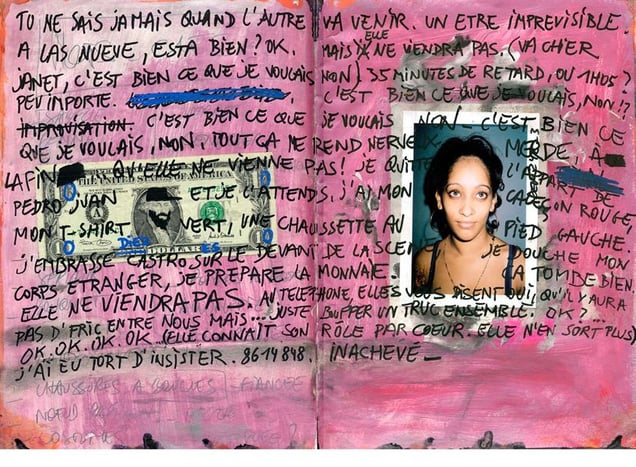 TU NE SAIS JAMAIS QUAND L'AUTRE VA VENIR. UN ETRE IMPREVISIBLE.
A LAS NUEVE, ESTA BIEN? OK. MAIS ELLE NE VIENDRA PAS. (VA CHIER
JANET, C'EST BIEN CE QUE JE VOULAIS NON) 35 MINUTES DE RETARD, OU 1H05?
PEU IMPORTE. C'EST BIEN CE QUE JE VOULAIS, NON!?
IMPROVISATION. C'EST BIEN CE QUE JE VOULAIS NON_ C'EST BIEN CE
QUE JE VOULAIS, NON. TOUT ÇA ME REND NERVEUX. MERDE, À
LA FIN QU'ELLE NE VIENNE PAS! JE QUITTE L'APPART DE
PEDRO JUAN ET JE L'ATTENDS, J'AI MON CALEÇON ROUGE,
MON T-SHIRT VERT, UNE CHAUSSETTE AU PIED GAUCHE.
J'EMBRASSE CASTRO SUR LE DEVANT DE LA SCENE, JE DOUCHE MON
CORPS ETRANGER, JE PREPARE LA MONNAIE. ÇA TOMBE BIEN.
ELLE NE VIENDRA PAS. AU TELEPHONE, ELLES VOUS DISENT OUI, QU'IL Y AURA
PAS D'FRIC ENTRE NOUS MAIS... JUSTE BOUFFER UN TRUC ENSEMBLE. OK?
OK. OK. OK. OK... (ELLE CONNAIT SON RÔLE PAR COEUR. ELLE N'EN SORT PLUS)
J'AI EU TORT D'INSISTER. 8614848. INACHEVÉ_
THE UNITED STATES OF AMERICA
DIEU ES
CHAUSSURES A FIANCEE
NOEUD